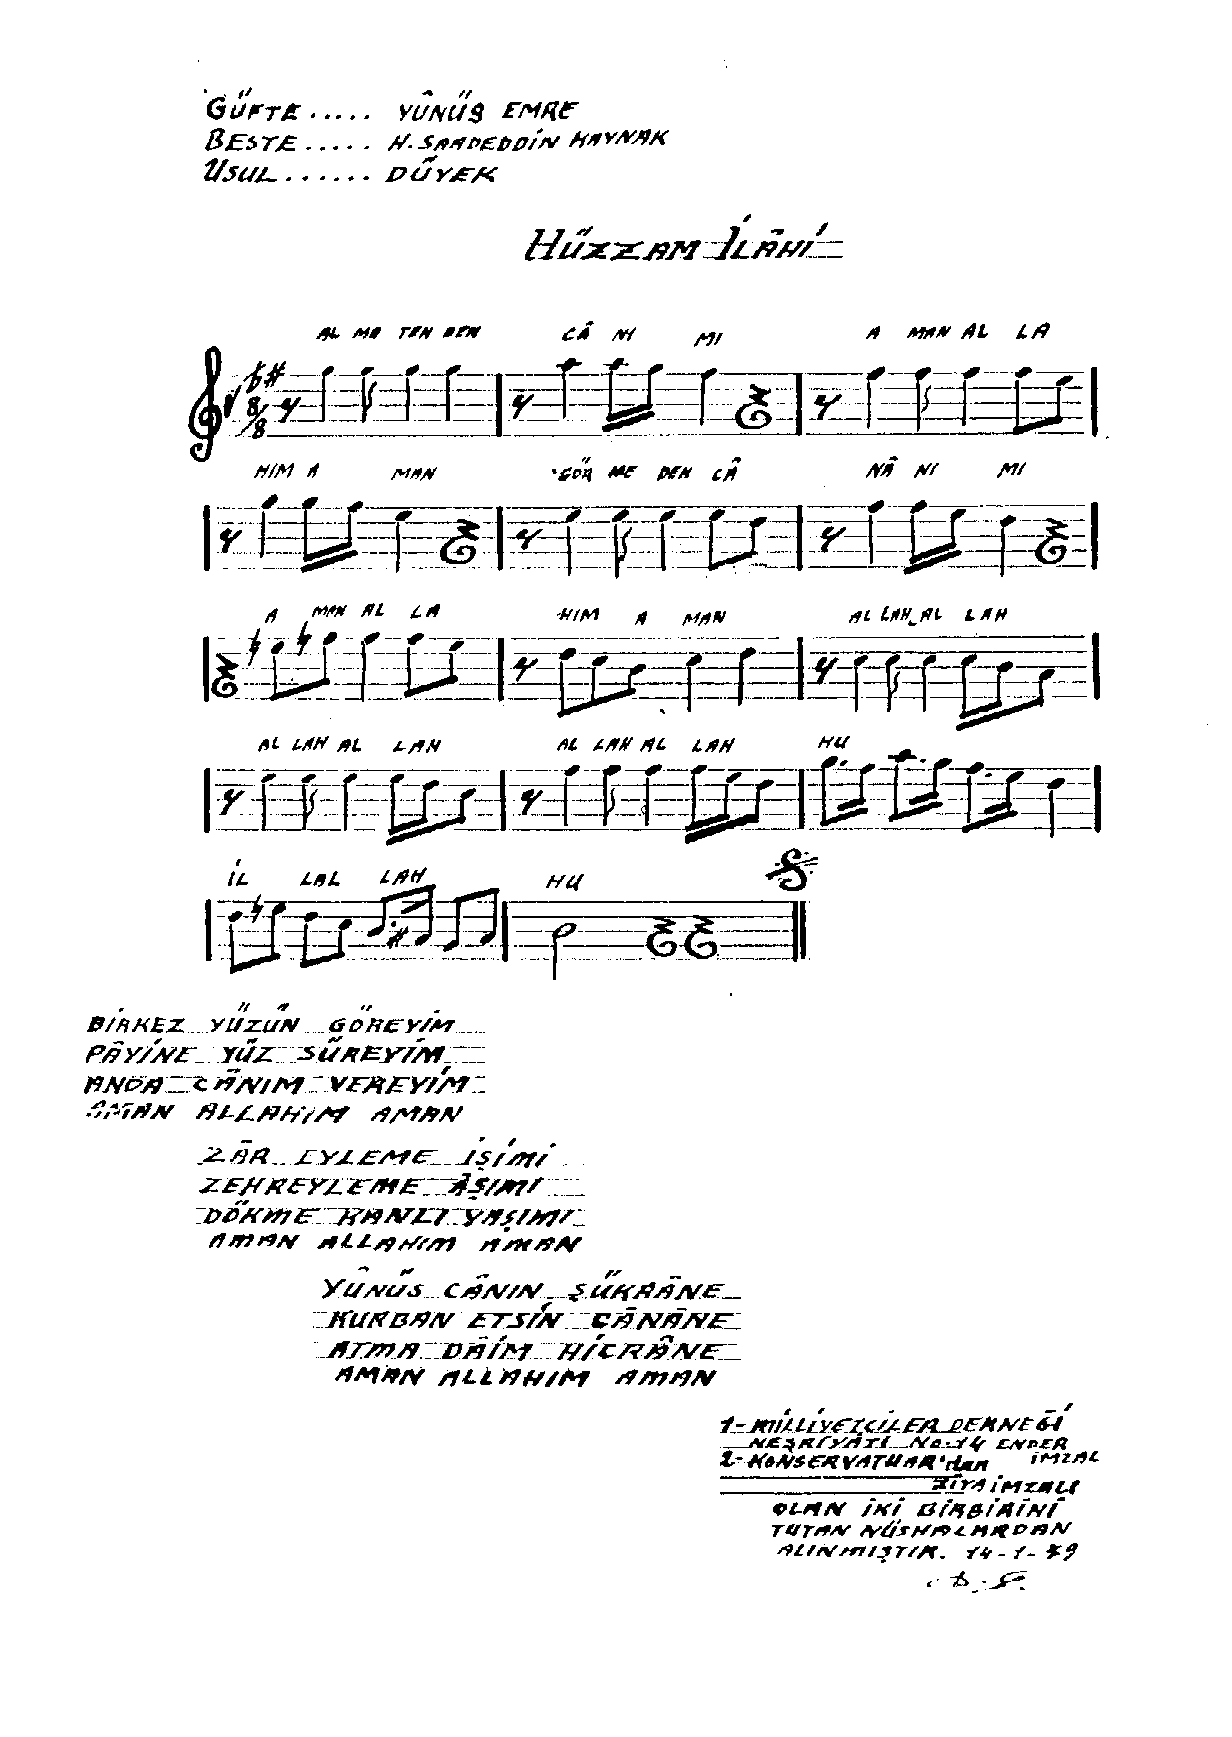 GÜFTE ..... YÛNÜS EMRE
BESTE ..... H. SAADEDDİN KAYNAK
USUL ...... DÜYEK
HÜZZAM İLÂHİ
AL MA TEN DEN CÂ NI MI A MAN AL LA
8/8
HIM A MAN GÖR ME DEN CÂ NÂ NI MI
A MAN AL LA HIM A MAN AL LAH AL LAH
AL LAH AL LAH AL LAH AL LAH HU
İL LAL LAH HU
BİRKEZ YÜZÜN GÖREYİM
PÂYİNE YÜZ SÜREYİM
ANDA CÂNIM VEREYİM
AMAN ALLAHIM AMAN
ZÂR EYLEME İŞİMİ
ZEHREYLEME ÂŞIMI
DÖKME KANLI YAŞIMI
AMAN ALLAHIM AMAN
YÛNÜS CÂNIN ŞÜKRÂNE
KURBAN ETSİN CÂNÂNE
ATMA DÂİM HİCRÂNE
AMAN ALLAHIM AMAN
1- MİLLİYETÇİLER DERNEĞİ
NEŞRİYÂTI No:14 ENDER
2- KONSERVATUAR'dan İMZAL
ZİYA İMZALI
OLAN İKİ BİRBİRİNİ
TUTAN NÜSHALARDAN
ALINMIŞTIR. 14-1-79